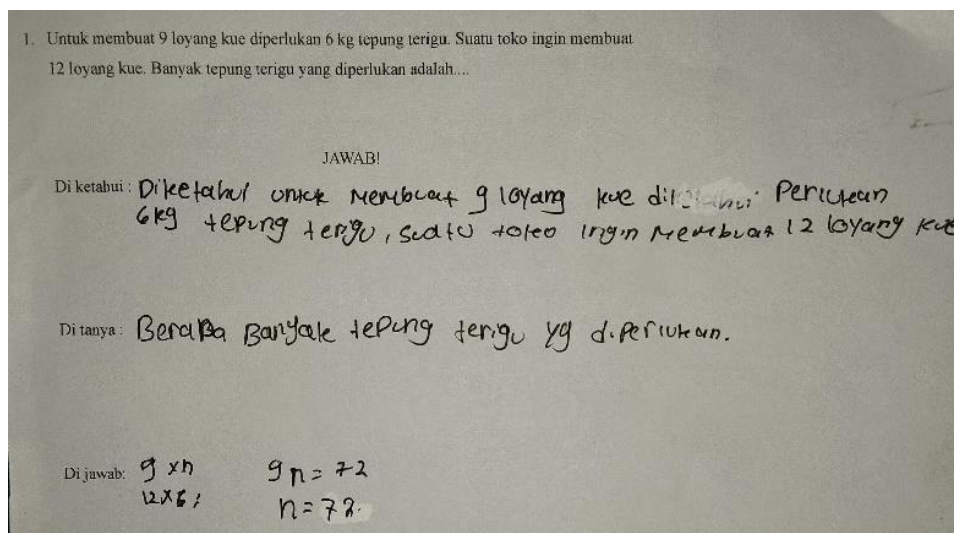 1. Untuk membuat 9 loyang kue diperlukan 6 kg tepung terigu. Suatu toko ingin membuat
12 loyang kue. Banyak tepung terigu yang diperlukan adalah....
JAWAB!
Di ketahui : Diketahui untuk Membuat 9 loyang kue Perlukan
6kg tepung terigu, suatu toko ingin Membuat 12 loyang kue
Di tanya : Berapa Banyak tepung terigu yg diperlukan.
Di jawab: 9 x n 9n = 72
12 x 6 n = 72